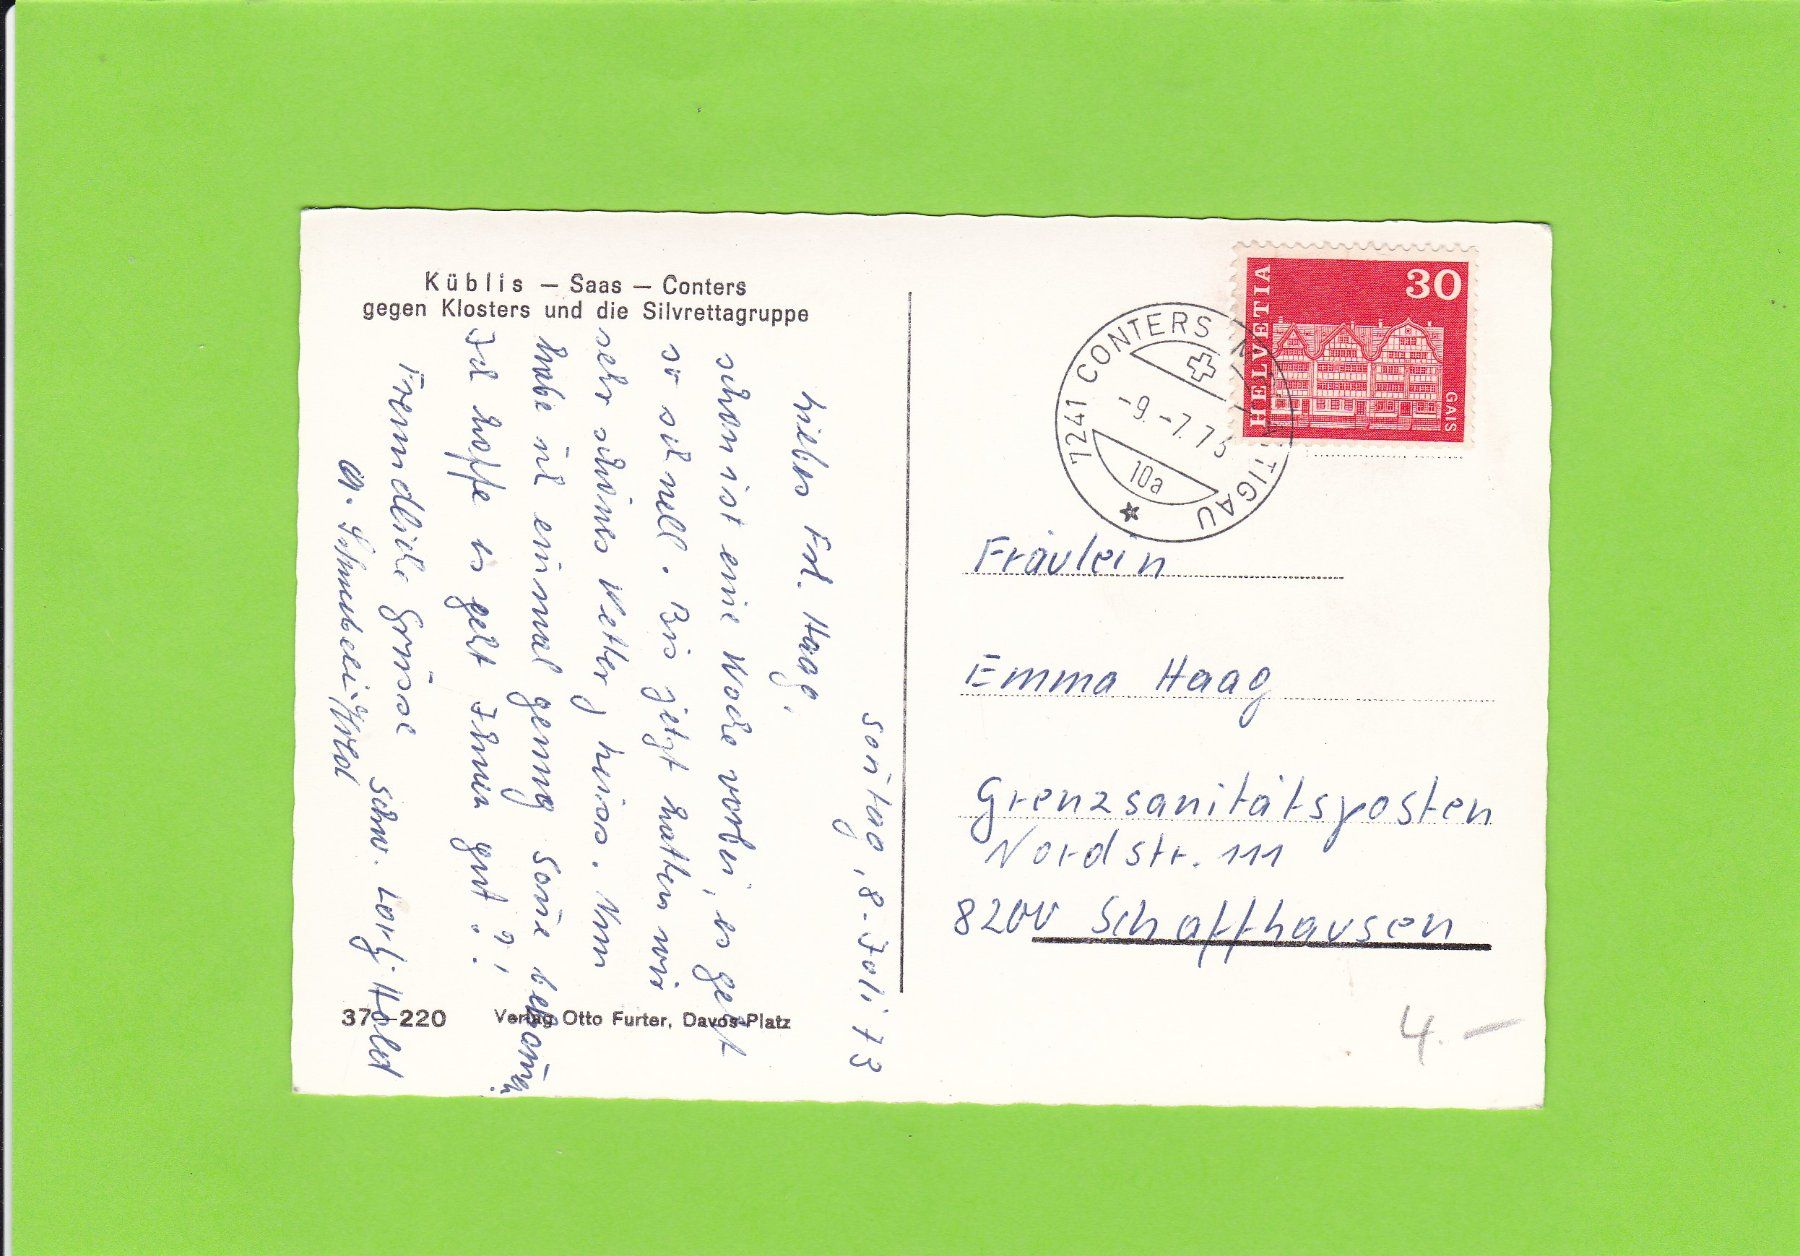 Küblis – Saas – Conters
gegen Klosters und die Silvrettagruppe
Sontag, 8. Juli 73
Liebes Frl. Haag,
schon ist eine Woche vorbei, es geht
so schnell. Bis jetzt hatten wir
sehr schönes Wetter, heiss. Nun
habe ich einmal genug Sonne bekommen
Ich hoffe es geht Ihnen gut?!
Freundliche Grüsse
Schw. Hold
37–220
Verlag Otto Furter, Davos-Platz
HELVETIA
30
GAIS
7241 CONTERS
-9.-7.73
10a
Fräulein
Emma Haag
Grenzsanitätsposten
Nordstr. 111
8200 Schaffhausen
4.–